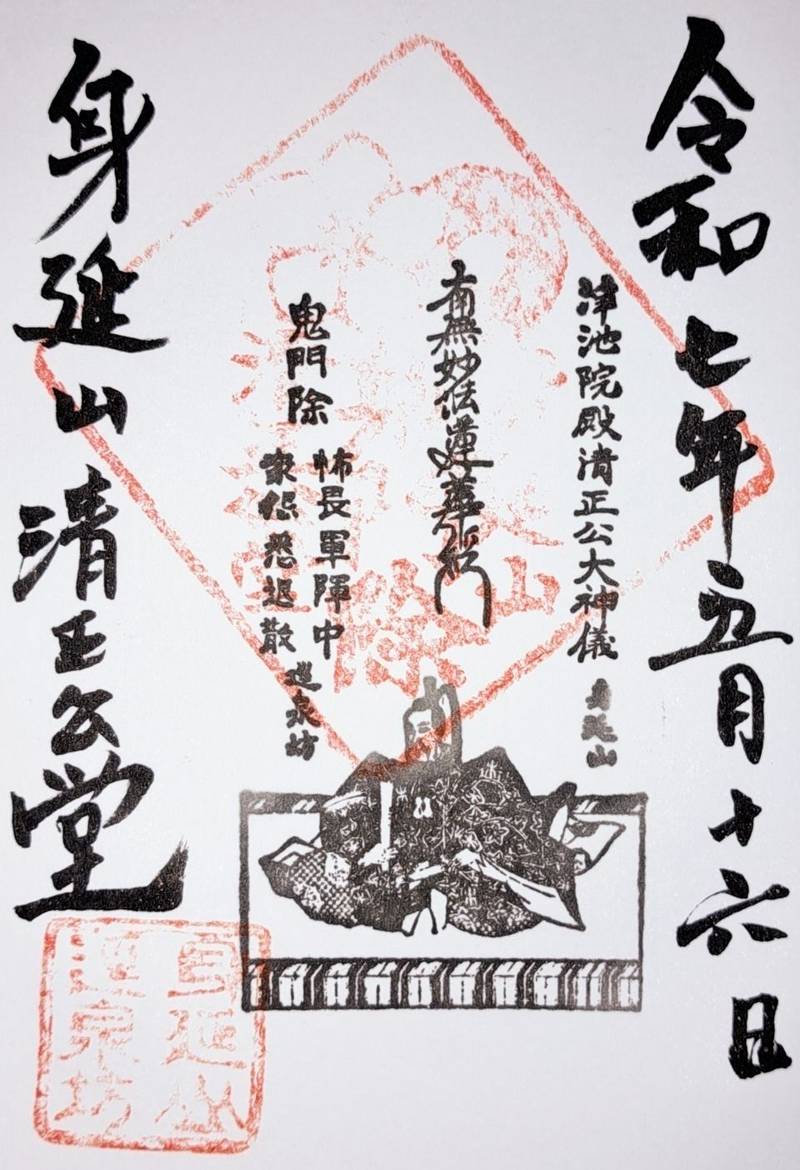 令和七年五月十六日
浄池院殿清正公大神儀
身延山
南無妙法蓮華経
鬼門除
怖畏軍陣中
衆怨悉退散
迯泉坊
身延山清正公堂
身延山
迯泉坊